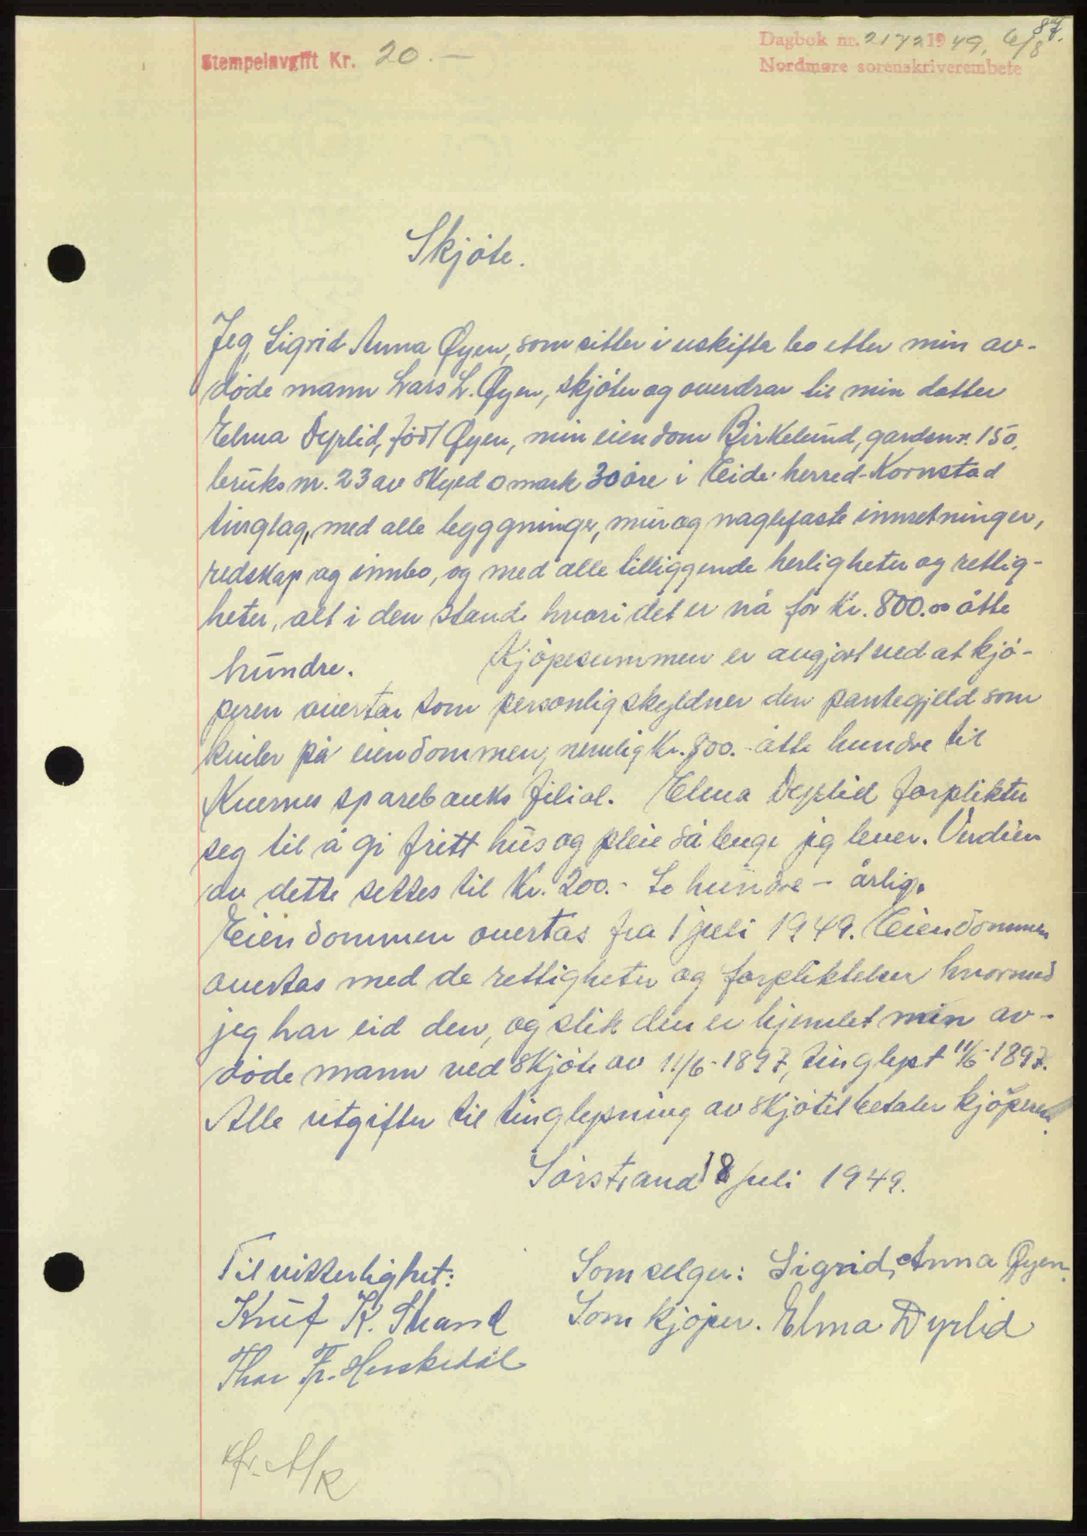 87.
Stempelavgift Kr. 20.—
Dagbok nr. 2172 1949, 6/8
Nordmøre sorenskriverembete
Skjöte.
Jeg, Sigrid Anna Øyen, som sitter i uskifta bo etter min av-
döde mann Lars L. Øyen, skjöter og overdrar til min datter
Elma Dyrlid, född Øyen, min eiendom Birkelund, gardsnr. 150,
bruksnr. 23 av skyld 0 mark 30 öre i Eide herred - Kornstad
tinglag, med alle bygggninger, mur og naglefaste innretninger,
redskap og innbo, og med alle tilliggende herligheter og rettig-
heter, alt i den stand hvori det er nå for kr. 800.00 åtte
hundre. Kjöpesummen er avgjort ved at kjö-
peren overtar som personlig skyldner den pantegjeld som
kviler på eiendommen, nemlig Kr. 800.- åtte hundre til
Kvernes sparebanks filial. Elma Dyrlid forplikter
seg til å gi fritt hus og pleie så lenge jeg lever. Verdien
av dette settes til Kr. 200.- to hundre - årlig.
Eiendommen overtas fra 1 juli 1949. Eiendommen
overtas med de rettigheter og forpliktelser hvormed
jeg har eid den, og slik den er hjemlet min av-
döde mann ved skjöte av 11/6-1897, tinglyst 11/6-1897.
Alle utgifter til tinglysning av skjötet betaler kjöperen.
Sörstrand 18 juli 1949.
Til vitterlighet: Som selger: Sigrid Anna Øyen.
Knut K. Strand Som kjöper. Elma Dyrlid
Thor Fr. Henskedal